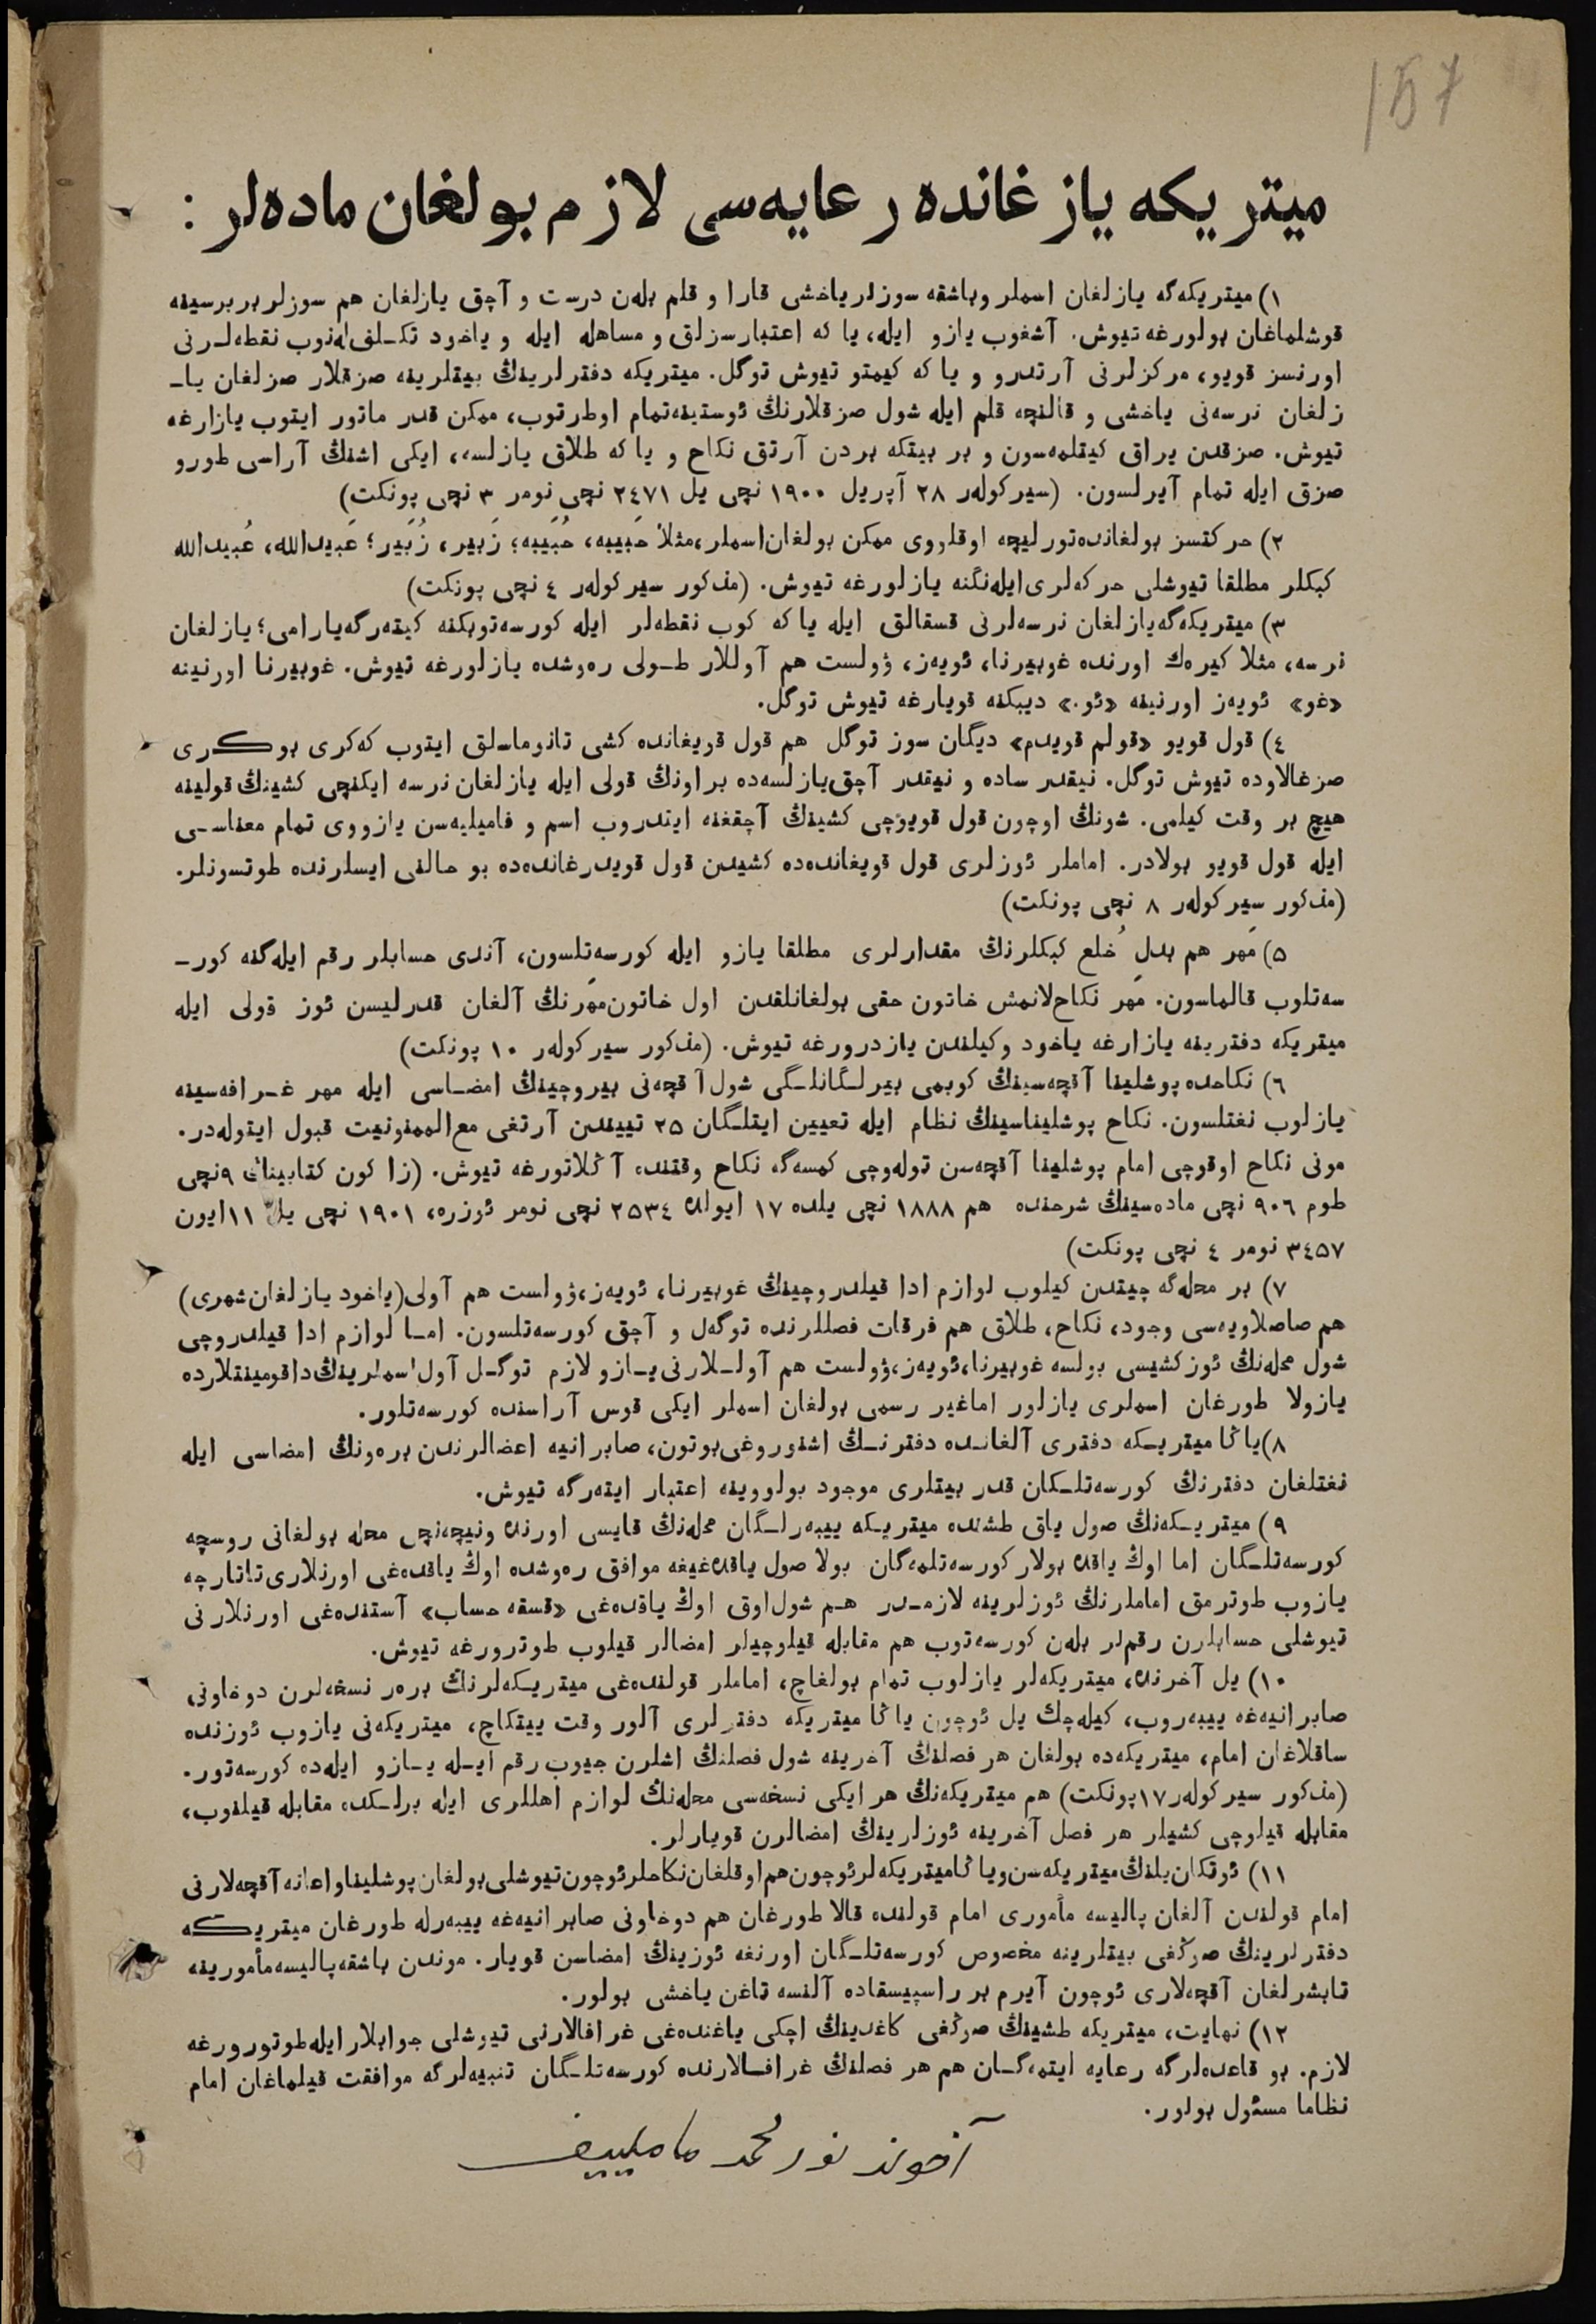 157
ميتريكه يازغانده رعايه‌سى لازم بولغان ماده‌لر :
١) ميتريكه‌گه يازلغان اسملر وباشقه سوزلر ياخشى قارا و قلم بله‌ن درست و آچق يازلغان هم سوزلر بربرسينه
قوشلماغان بولورغه تيوش. آشغوب يازو ايله، يا كه اعتبارسزلق و مساهله ايله و ياخود تكـلفله‌نوب نقطه‌لـرنى
اورنسز قويو، مركزلرنى آرتدرو و يا كه كيمتو تيوش توگل. ميتريكه دفترلرينڭ بيتلرينه صزقلار صزلغان يا‌ـ
زلغان نرسه‌نى ياخشى و قالنچه قلم ايله شول صزقلارنڭ ئوستينه‌تمام اوطرتوب، ممكن قدر ماتور ايتوب يازارغه
تيوش. صزقدن يراق كيتلمه‌سون و بر بيتكه بردن آرتق نكاح و يا كه طلاق يازلسه، ايكى اشنڭ آراسى طورو
صزق ايله تمام آيرلسون. (سيركوله‌ر ٢٨ آپريل ١٩٠٠ نچى يل ٢٤٧١ نچى نومر ٣ نچى پونكت)
٢) حركتسز بولغانده‌تورليچه اوقلووى ممكن بولغان‌اسملر،مثلا حَبيبه، حُبَيبه؛ زَبير، زُبَير؛ عَبيدالله، عُبيدالله
كبكلر مطلقا تيوشلى حركه‌لرى‌ايله‌نگنه يازلورغه تيوش. (مذكور سيركوله‌ر ٤ نچى پونكت)
٣) ميتريكه‌گه‌يازلغان نرسه‌لرنى قسقالق ايله يا كه كوب نقطه‌لر ايله كورسه‌توبكنه كيته‌رگه‌يارامى؛ يازلغان
نرسه، مثلا كيره‌ك اورنده غوبيرنا، ئويه‌ز، ۋولست هم آوللار طـولى ره‌وشده يازلورغه تيوش. غوبيرنا اورنينه
«غو» ئويه‌ز اورنينه «ئو.» ديبكنه قويارغه تيوش توگل.
٤) قول قويو «قولم قويدم» ديگان سوز توگل هم قول قويغانده كشى تانوماسلق ايتوب كه‌كرى بوكرى
صزغالاوده تيوش توگل. نيقدر ساده و نيقدر آچق‌يازلسه‌ده براونڭ قولى ايله يازلغان نرسه ايكنچى كشينڭ قولينه
هيچ بر وقت كيلمى. شونڭ اوچون قول قويوچى كشينڭ آچقغنه ايتدروب اسم و فاميليه‌سن يازووى تمام معناسـى
ايله قول قويو بولادر. اماملر ئوزلرى قول قويغانده‌ده كشيدن قول قويدرغانده‌ده بو حالنى ايسلرنده طوتسونلر.
(مذكور سيركوله‌ر ٨ نچى پونكت)
٥) مَهر هم بدلِ خُلع كبكلرنڭ مقدارلرى مطلقا يازو ايله كورسه‌تلسون، آندى حسابلر رقم ايله‌گنه كور‌ـ
سه‌تلوب قالماسون. مَهر نكاح‌لانمش خاتون حقى بولغانلقدن اول خاتون‌مَهرنڭ آلغان قدرليسن ئوز قولى ايله
ميتريكه دفترينه يازارغه ياخود وكيلندن يازدرورغه تيوش. (مذكور سيركوله‌ر ١٠ پونكت)
٦) نكاحده پوشلينا آقچه‌سينڭ كوبمى بيرلـگانلـگى شول آقچه‌نى بيروچينڭ امضـاسى ايله مهر غـرافه‌سينه
يازلوب نغتلسون. نكاح پوشليناسينڭ نظام ايله تعيين ايتلـگان ٢٥ تييندن آرتغى مع‌الممنونيت قبول ايتوله‌در.
مونى نكاح اوقوچى امام پوشلينا آقچه‌سن توله‌وچى كمسه‌گه نكاح وقتنده آڭلاتورغه تيوش. (زاكون كتابينڭ ٩نچى
طوم ٩٠٦ نچى ماده‌سينڭ شرحنده هم ١٨٨٨ نچى يلده ١٧ ايولده ٢٥٣٤ نچى نومر ئوزره، ١٩٠١ نچى يلڭ ١١ايون
٣٤٥٧ نومر ٤ نچى پونكت)
٧) بر محله‌گه چيتدن كيلوب لوازم ادا قيلدروچينڭ غوبيرنا، ئويه‌ز،ۋولست هم آولى(ياخود يازلغان‌شهرى)
هم صاصلاويه‌سى وجود، نكاح، طلاق هم فرقات فصللرنده توگه‌ل و آچق كورسه‌تلسون. امـا لوازم ادا قيلدروچى
شول محله‌نڭ ئوزكشيسى بولسه غوبيرنا،ئويه‌ز،ۋولست هم آولـلارنى يـازو لازم توگـل آول اسملرينڭ‌داقومينتلارده
يازولا طورغان اسملرى يازلور اماغير رسمى بولغان اسملر ايكى قوس آراسنده كورسه‌تلور.
٨)ياڭا ميتريـكه دفترى آلغانـده دفترنـڭ اشنوروغى‌بوتون، صابرانيه اعضالرندن بره‌ونڭ امضاسى ايله
نغتلغان دفترنڭ كورسه‌تلـگان قدر بيتلرى موجود بولووينه اعتبار ايته‌رگه تيوش.
٩) ميتريـكه‌نڭ صول ياق طشنده ميتريـكه ييبه‌رلـگان محله‌نڭ قايسى اورنده ونيچه‌نچى محله بولغانى روسچه
كورسه‌تلـگان اما اوڭ ياقده بولار كورسه‌تلمه‌گان بولا صول ياقده‌غيغه موافق ره‌وشده اوڭ ياقده‌غى اورنلارى‌تاتارچه
يازوب طوترمق اماملرنڭ ئوزلرينه لازمـدر هـم شول‌اوق اوڭ ياقده‌غى «قسقه حساب» آستنده‌غى اورنلارنى
تيوشلى حسابلرن رقم‌لر بله‌ن كورسه‌توب هم مقابله قيلوچيلر امضالر قيلوب طوترورغه تيوش.
١٠) يل آخرنده، ميتريكه‌لر يازلوب تمام بولغاچ، اماملر قولنده‌غى ميتريـكه‌لرنڭ بره‌ر نسخه‌لرن دوخاونى
صابرانيه‌غه ييبه‌روب، كيله‌چك يل ئوچون ياڭا ميتريكه دفترلرى آلور وقت ييتكاچ، ميتريكه‌نى يازوب ئوزنده
ساقلاغان امام، ميتريكه‌ده بولغان هر فصلنڭ آخرينه شول فصلنڭ اشلرن جيوب رقم ايـله يـازو ايله‌ده كورسه‌تور.
(مذكور سيركوله‌ر١٧پونكت) هم ميتريكه‌نڭ هر ايكى نسخه‌سى محله‌نڭ لوازم اهللرى ايله برلـكده مقابله قيلنوب،
مقابله قيلوچى كشيلر هر فصل آخرينه ئوزلرينڭ امضالرن قويارلر.
١١) ئوتكان‌يلنڭ‌ميتريكه‌سن‌وياڭاميتريكه‌لرئوچون‌هم‌اوقلغان‌نكاحلرئوچون‌تيوشلى‌بولغان‌پوشليناواعانه‌آقچه‌لارنى
امام قولندن آلغان پاليسه مأمورى امام قولنده قالا طورغان هم دوخاونى صابرانيه‌غه ييبه‌رله طورغان ميتريكه
دفترلرينڭ صوڭغى بيتلرينه مخصوص كورسه‌تلـگان اورنغه ئوزينڭ امضاسن قويار. موندن باشقه‌پاليسه‌مأمورينه
تابشرلغان آقچه‌لارى ئوچون آيرم بر راسپيسقاده آلنسه تاغن ياخشى بولور.
١٢) نهايت، ميتريكه طشينڭ صوڭغى كاغدينڭ اچكى ياغنده‌غى غرافالارنى تيوشلى جوابلار ايله‌طوتورورغه
لازم. بو قاعده‌لرگه رعايه ايتمه‌گـان هم هر فصلنڭ غرافـالارنده كورسه‌تلـگان تنبيه‌لرگه موافقت قيلماغان امام
نظاما مسئول بولور.
آخوند نور محمد ماملييف